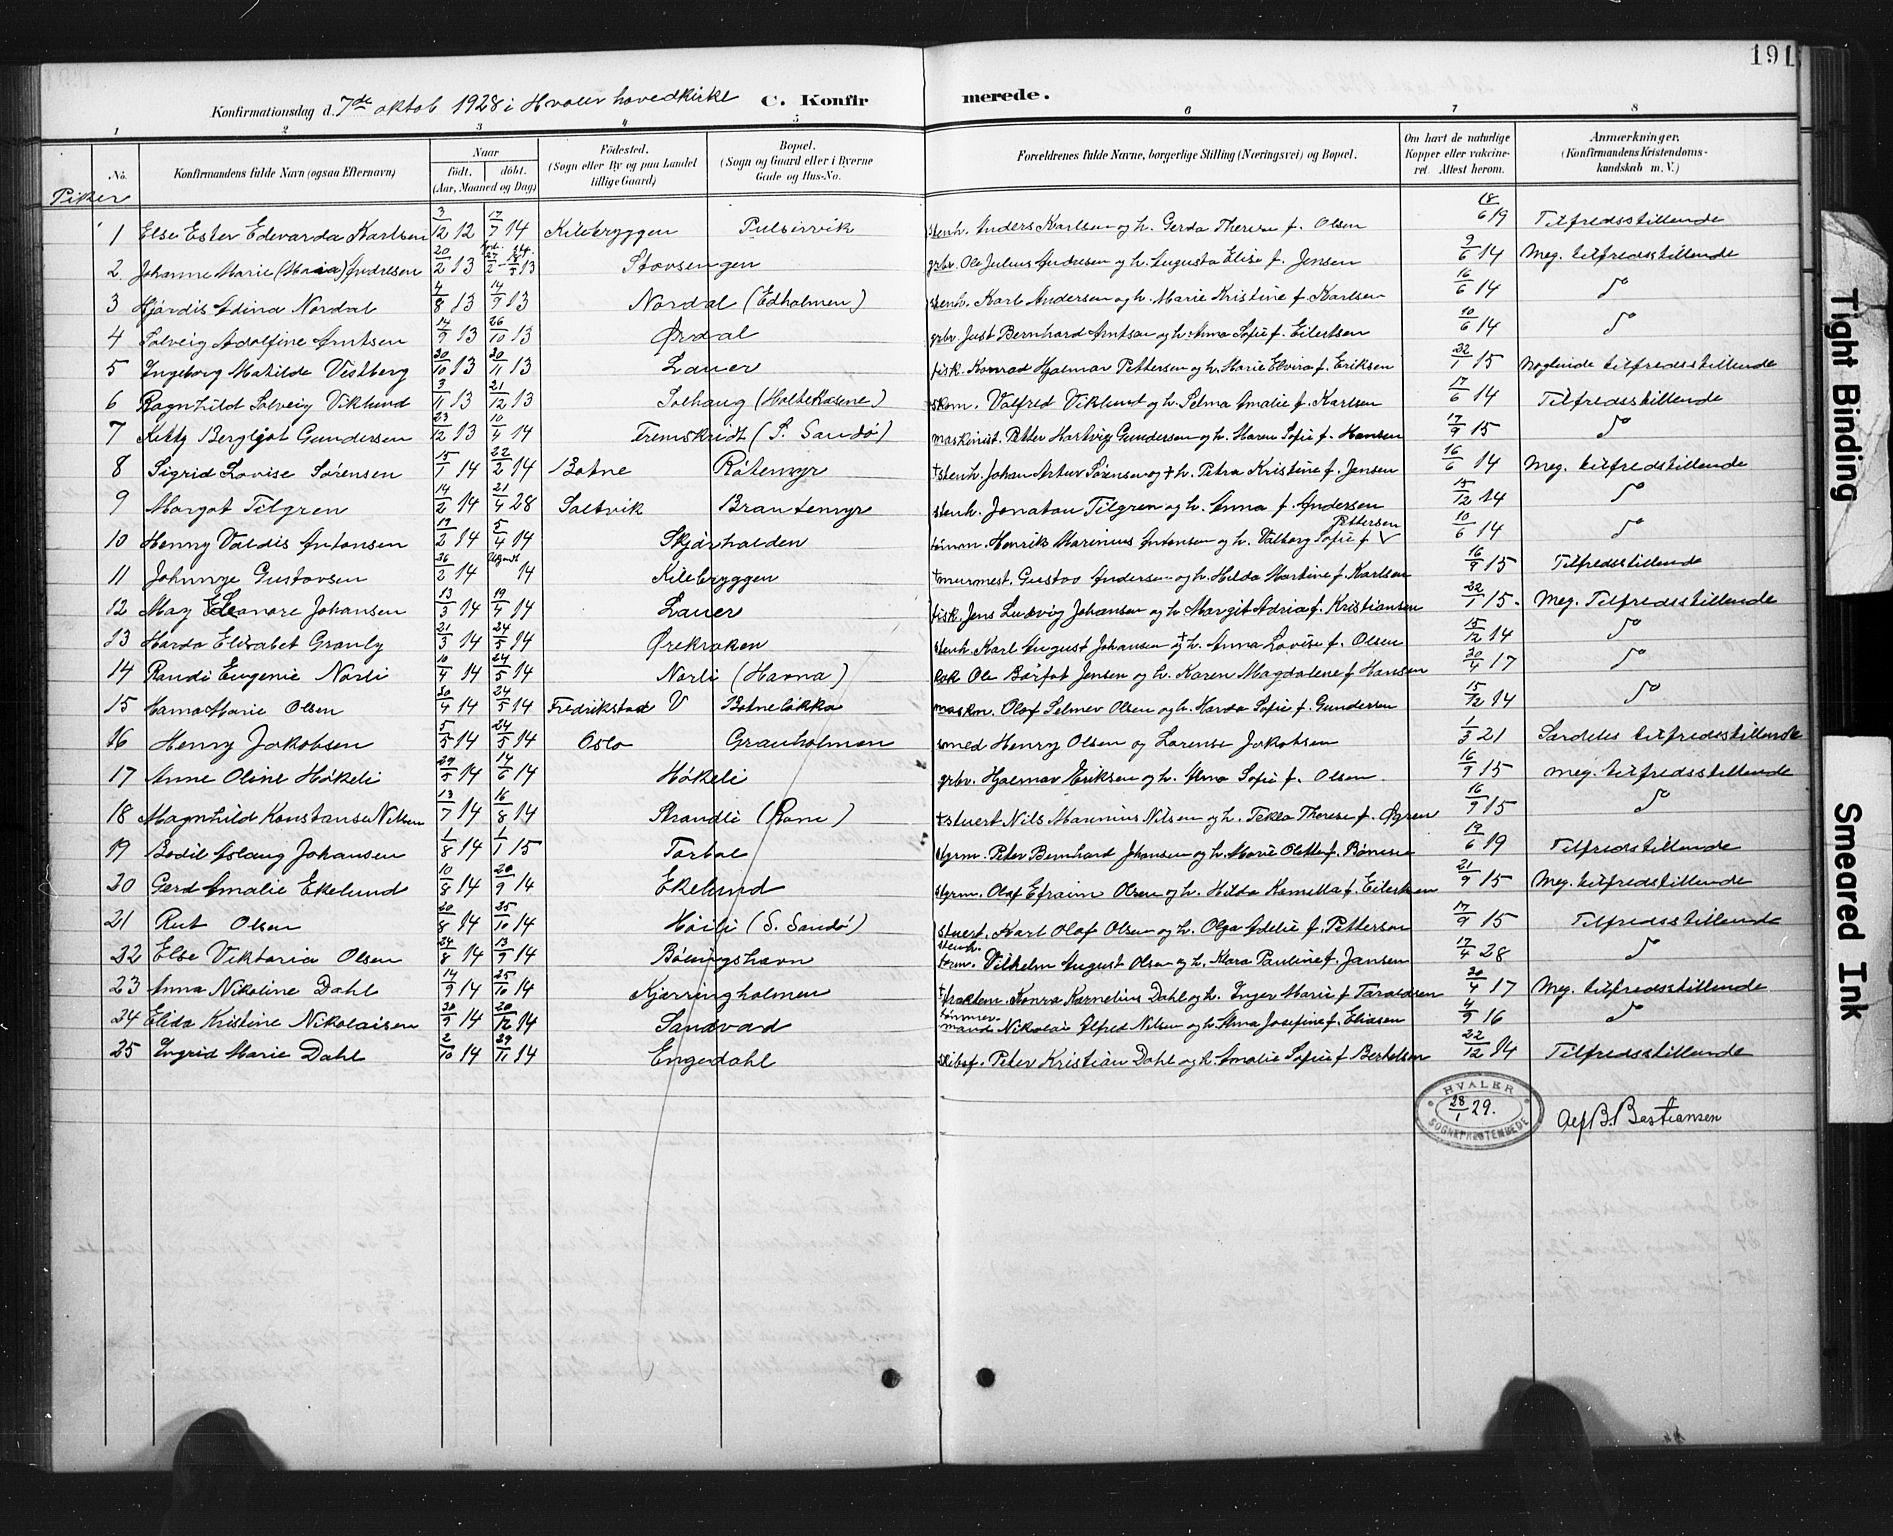 191
Konfirmationsdag d. 7de oktob 1928 i Hvaler hovedkirke C. Konfirmerede.
1 2 3 4 5 6 7 8
No. Konfirmandens fulde Navn (ogsaa Efternavn) Naar født. døbt. (Aar, Maaned og Dag) Fødested. (Sogn eller By og paa Landet tillige Gaard) Bopæl. (Sogn og Gaard eller i Byerne Gade og Hus-No. Forældrenes fulde Navne, borgerlige Stilling (Næringsvei) og Bopæl. Om havt de naturlige Kopper eller vaccineret. Attest herom. Anmærkninger. (Konfirmandens Kristendomskundskab m. V.)
Piker
1 Else Ester Edevarda Karlsen 3/12 12 17/7 14 Kilebryggen Pulservik stenh. Anders Karlsen og h. Gerda Therese f. Olsen 18/6 19 Tilfredsstillende
2 Johanne Marie (Maria) Andresen 20/2 13 Stovsengen grbr. Ole Julius Andresen og h. Augusta Elise f. Jensen 9/6 14 Meg. tilfredsstillende
3 Hjørdis Adina Nordal 4/8 13 14/9 13 Nordal (Edholmen) stenh. Karl Andersen og h. Marie Kristine f. Karlsen 16/6 14 do
4 Solveig Adolfine Arntsen 14/9 13 26/10 13 Ørdal grbr. Just Bernhard Arntsen og h. Anna Sofie f. Eilertsen 10/6 14 do
5 Ingeborg Matilde Vestberg 20/10 13 30/11 13 Lauer fisk. Konrad Hjalmar Pettersen og h. Marie Elvira f. Eriksen 22/1 15 Noglunde tilfredsstillende
6 Ragnhild Solveig Viklund 3/11 13 21/12 13 Solhaug (Holtekasene) skom. Valfred Viklund og h. Selma Amalie f. Karlsen 17/6 14 Tilfredsstillende
7 Kitty Bergljot Gundersen 23/12 13 10/4 14 Fremskridt (S. Sandø) maskinist. Petter Hartvig Gundersen og h. Maren Sofie f. Hansen 17/9 15 do
8 Sigrid Lovise Sørensen 15/1 14 22/2 14 Botne Røtemyr †stenh. Johan Artur Sørensen og † h. Petra Kristine f. Jensen 16/6 14 Meg. tilfredstillende
9 Margot Tilgren 14/2 14 21/4 28 Saltvik Brantemyr stenh. Jonatan Tilgren og h. Anna f. Andersen 15/12 14 do
10 Henny Valdis Antonsen 19/2 14 5/4 14 Skjærhalden tømm. Henrik Marinius Antonsen og h. Valborg Sofie f. Pettersen 10/6 14 do
11 Johnnye Gustavsen 26/2 14 14 Kilebryggen †murmest. Gustav Andersen og h. Hilda Martine f. Karlsen 16/9 15 Tilfredsstillende
12 May Eleanore Johansen 13/3 14 19/4 14 Lauer fisk. Jens Ludvig Johansen og h. Margit Adria f. Kristiansen 22/1 15. Meg. Tilfredsstillende
13 Harda Elisabet Granly 21/3 14 24/5 14 Ørekroken stenh. Karl August Johansen og † h. Anna Lovise f. Olsen 15/12 14 do
14 Randi Eugenie Nørli 10/4 14 24/5 14 Nørli (Havna) Ole Børfot Jensen og h. Karen Magdalene f. Hansen 30/4 17 do
15 Hama Marie Olsen 30/4 14 24/5 14 Fredrikstad V Botneløkka maskn. Olaf Selmer Olsen og h. Harda Sofie f. Gundersen 15/12 14 do
16 Henny Jakobsen 5/5 14 24/5 14 Oslo Granholmen smed Henry Olsen og Lorense Jakobsen 1/3 21 Særdeles tilfredsstillende
17 Anne Oline Høkeli 29/5 14 14/6 14 Høkeli grbr. Hjalmar Eriksen og h. Anna Sofie f. Olsen 16/9 15 Meg. tilfredsstillende
18 Magnhild Konstanse Nilsen 13/7 14 16/8 14 Strandli (Rom) †stuert Nils Marinius Nilsen og h. Tekla Therese f. Øgren 16/9 15 do
19 Bodil Aslaug Johansen 1/8 14 1/1 15 Torbal styrm. Peter Bernhard Johansen og h. Marie Olette f. 19/6 19 Tilfredsstillende
20 Gerd Amalie Ekelund 10/8 14 20/9 14 Ekelund styrm. Olaf Efraim Olsen og h. Hilda Kamilla f. Eilertsen 21/9 15 Meg. tilfredsstillende
21 Rut Olsen 20/8 14 25/10 14 Høili (S. Sandø) stuert. Karl Olaf Olsen og h. Olga Adelie f. Petterson 17/9 15 Tilfredsstillende
22 Else Viktoria Olsen 24/8 14 13/9 14 Bølingshavn stenh. form. Vilhelm August Olsen og h. Klara Pauline f. Jansen 17/4 28 do
23 Anna Nikoline Dahl 14/9 14 25/10 14 Kjærringholmen Konra Kornelius Dahl og h. Inger Marie f. Taraldsen 30/4 17 Meg. tilfredsstillende
24 Elida Kristine Nikolaisen 20/9 14 20/12 14 Sandvad tømmermand Nikolai Alfred Nilsen og h. Anna Josefine f. Eliasen 4/9 16 do
25 Ingrid Marie Dahl 2/10 14 29/11 14 Engedahl skibsf. Peter Kristian Dahl og h. Amalie Sofie f. Bertelsen 22/12 14 Tilfredsstillende
HVALER
28/1 29.
SOGNEPRESTEMBEDE
Alf B. Bastiansen
Tight Binding
Smeared Ink